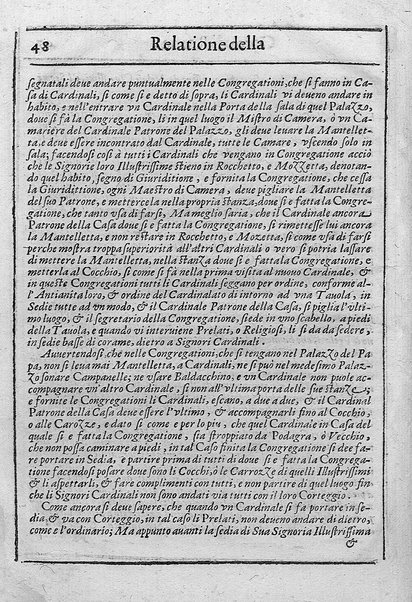 48 Relatione della
segnatali deue andare puntualmente nelle Congregationi, che si fanno in Ca
sa di Cardinali, si come si e detto di sopra, li Cardinali vi deueno andare in
habito, e nell'entrare vn Cardinale nella Porta della sala di quel Palazzo,
doue si fà la Congregatione, li in quel luogo il Mistro di Camera, ò vn Ca
mariere del Cardinale Patrone del Palazzo, gli deue leuare la Mantellet
ta, e deue essere incontrato dal Cardinale, tutte le Camare, vscendo solo in
sala; facendosi così à tutti i Cardinali che vengano in Congregatione acciò
che le Signorie loro Illustrissime stieno in Rocchetto, e Mozzetta, denotan-
do quel habito, segno di Giuriditione, e fornita la Congregatione, che cessa
la Giuridittione, ogni Maestro di Camera, deue pigliare la Mantelletta
del suo Patrone, e mettercela nella propria stanza, doue si e fatta la Congre-
gatione, che tanto vsa di farsi, Ma meglio saria, che il Cardinale ancora
Patrone della Casa doue si e fatta la Congregatione, si rimettesse lui ancora
la Mantelletta, e non restare in Rocchetto, e Mozzetta, si come vsa di farsi
perche mostra troppa superiorità all'altri Cardinali o vero si potria lassare
di mettere la Mantelletta, nella stanza doue si e fatta la Congregatione, e
metterla al Cocchio, si come si fà nella prima visita al nuouo Cardinale, &
in queste Congregationi tutti li Cardinali seggano per ordine, conforme al-
l'Antianita loro, & ordine del Cardinalato di intorno ad vna Tauola, in
Sedie tutte ad vn modo, & il Cardinale Patrone della Casa, si piglia l'vlti-
mo luogo, & il segretario della Congregatione, siede in vno scabello, a piedi
della Tauola, e quando vi interuiene Prelati, o Religiosi, li si da da sedere,
in sedie basse di corame, dietro a Signori Cardinali.
Auuertendosi, che nelle Congregationi, che si tengano nel Palazzo del Pa
pa, non si leua mai Mantelletta, a Cardinali, ne si può nel medesimo Palaz-
zo sonare Campanelle; ne vsare Baldacchino, e vn Cardinale non puole ac-
compagnare vn'altro Cardinale, si non all'vltima porta delle sue stanze;
e fornite le Congregationi li Cardinali, escano, a due a due, & il Cardinal
Patrone della Casa deue essere l'vltimo, & accompagnarli fino al Cocchio,
o alle Carozze, e dato si come e per lo piu, che quel Cardinale in Casa del
quale si e fatta la Congregatione, sia stroppiato da Podagra, ò Vecchio,
che non possa caminare a piedi, in tal Caso finita la Congregatione si dee fa-
re portare in Sedia, e partire prima di tutti di doue si e fatta la Congrega-
tione facendosi posare doue sono li Cocchi, ò le Carrozze di quelli Illustrissimi
& li aspettarli, & fare complimenti con tutti, e non partire di quel luogo fin-
che li Signori Cardinali non sono andati via tutti con il loro Corteggio.
Come ancora si deue sapere, che quando vn Cardinale si fa portare in se-
dia, & va con Corteggio, in tal caso li Prelati, non deueno andare di dietro,
come e l'ordinario; Ma appunto auanti la sedia di Sua Signoria Illustrissima
&